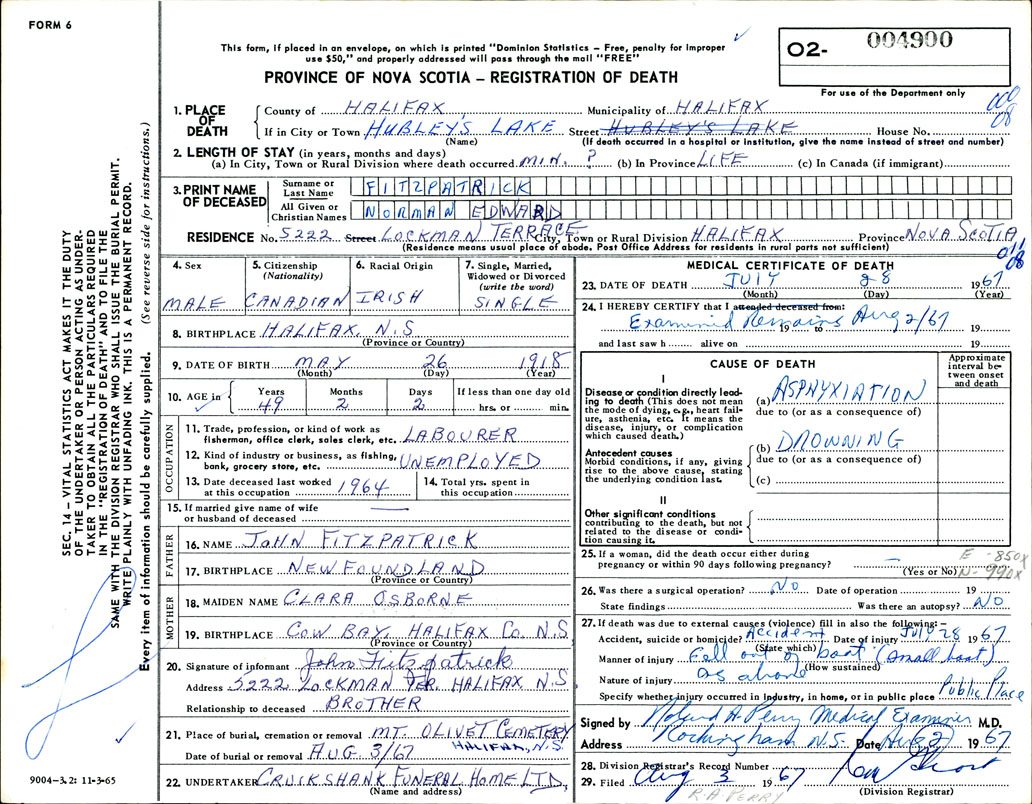 FORM 6
This form, if placed in an envelope, on which is printed "Dominion Statistics – Free, penalty for improper
use $50," and properly addressed will pass through the mail "FREE"
PROVINCE OF NOVA SCOTIA – REGISTRATION OF DEATH
O2- 004900
For use of the Department only
1. PLACE OF DEATH
County of HALIFAX Municipality of HALIFAX
If in City or Town HUBLEY'S LAKE Street HUBLEY'S LAKE House No.
(Name) (If death occurred in a hospital or institution, give the name instead of street and number)
2. LENGTH OF STAY (in years, months and days)
(a) In City, Town or Rural Division where death occurred MIN. ? (b) In Province LIFE (c) In Canada (if immigrant)
3. PRINT NAME OF DECEASED
Surname or Last Name FITZPATRICK
All Given or Christian Names NORMAN EDWARD
RESIDENCE No. 5222 Street LOCKMAN TERRACE City, Town or Rural Division HALIFAX Province NOVA SCOTIA
(Residence means usual place of abode. Post Office Address for residents in rural parts not sufficient)
4. Sex MALE
5. Citizenship (Nationality) CANADIAN
6. Racial Origin IRISH
7. Single, Married, Widowed or Divorced (write the word) SINGLE
8. BIRTHPLACE HALIFAX N.S
(Province or Country)
9. DATE OF BIRTH MAY 26 1918
(Month) (Day) (Year)
10. AGE in Years 49 Months 2 Days 2 If less than one day old hrs. or min.
OCCUPATION
11. Trade, profession, or kind of work as fisherman, office clerk, sales clerk, etc. LABOURER
12. Kind of industry or business, as fishing, bank, grocery store, etc. UNEMPLOYED
13. Date deceased last worked at this occupation 1964
14. Total yrs. spent in this occupation
15. If married give name of wife or husband of deceased —
FATHER
16. NAME JOHN FITZPATRICK
17. BIRTHPLACE NEWFOUNDLAND
(Province or Country)
MOTHER
18. MAIDEN NAME CLARA OSBORNE
19. BIRTHPLACE COW BAY, HALIFAX Co. N.S
(Province or Country)
20. Signature of informant John Fitzpatrick
Address 5222 LOCKMAN TER. HALIFAX N.S
Relationship to deceased BROTHER
21. Place of burial, cremation or removal MT. OLIVET CEMETERY
HALIFAX, N.S.
Date of burial or removal AUG. 3/67
22. UNDERTAKER CRUIKSHANK FUNERAL HOME LTD,
(Name and address)
MEDICAL CERTIFICATE OF DEATH
23. DATE OF DEATH JULY 28 1967
(Month) (Day) (Year)
24. I HEREBY CERTIFY that I attended deceased from:
Examined Remains Aug 2/67 19 to 19
and last saw h alive on 19
CAUSE OF DEATH
Approximate interval between onset and death
I
Disease or condition directly leading to death (This does not mean the mode of dying, e.g., heart failure, asthenia, etc. It means the disease, injury, or complication which caused death.)
(a) ASPHYXIATION
due to (or as a consequence of)
Antecedent causes
Morbid conditions, if any, giving rise to the above cause, stating the underlying condition last.
(b) DROWNING
due to (or as a consequence of)
(c)
II
Other significant conditions
contributing to the death, but not related to the disease or condition causing it.
25. If a woman, did the death occur either during pregnancy or within 90 days following pregnancy? —
(Yes or No)
E - 850X
N - 990X
26. Was there a surgical operation? NO Date of operation 19
State findings Was there an autopsy? NO
27. If death was due to external causes (violence) fill in also the following:–
Accident, suicide or homicide? Accident Date of injury JULY 28 1967
(State which)
Manner of injury Fell out of boat (small boat)
(How sustained)
Nature of injury as above
Specify whether injury occurred in industry, in home, or in public place Public Place
Signed by Roland A Perry Medical Examiner M.D.
Address Rockingham N.S. Date Aug 2 1967
28. Division Registrar's Record Number
29. Filed Aug 3 1967
(Division Registrar)
R.A PERRY
SEC. 14 – VITAL STATISTICS ACT MAKES IT THE DUTY
OF THE UNDERTAKER OR PERSON ACTING AS UNDER-
TAKER TO OBTAIN ALL THE PARTICULARS REQUIRED
IN THE "REGISTRATION OF DEATH" AND TO FILE THE
SAME WITH THE DIVISION REGISTRAR WHO SHALL ISSUE THE BURIAL PERMIT.
WRITE PLAINLY WITH UNFADING INK. THIS IS A PERMANENT RECORD.
Every item of information should be carefully supplied. (See reverse side for instructions.)
9004–3.2: 11-3-65